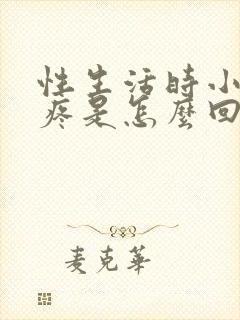 性生活時小
疼是怎麼回
麦克華